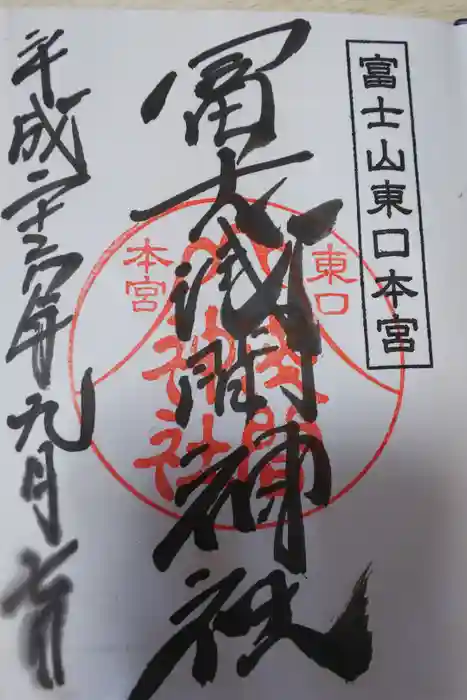 富士山東口本宮
冨士浅間神社
平成二十六年九月七日
東口
本宮
淺間
神社